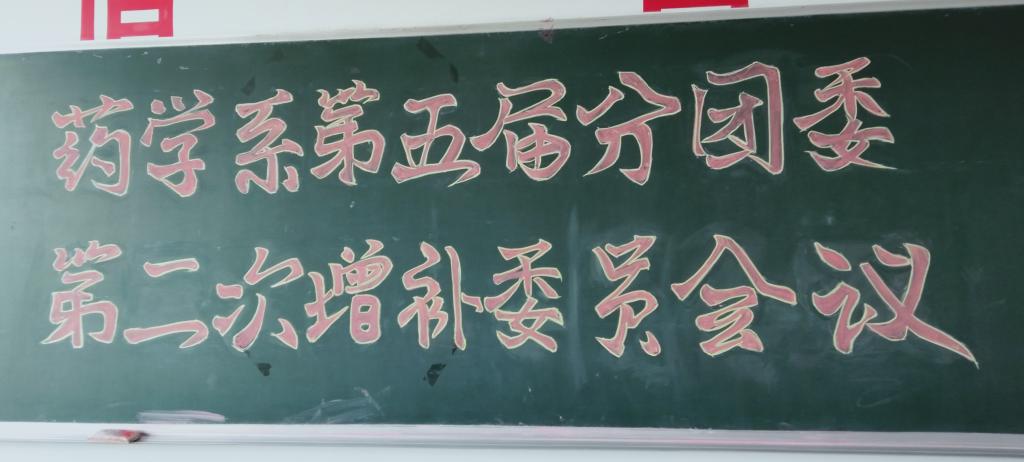 药学系第五届分团委
第二次增补委员会议